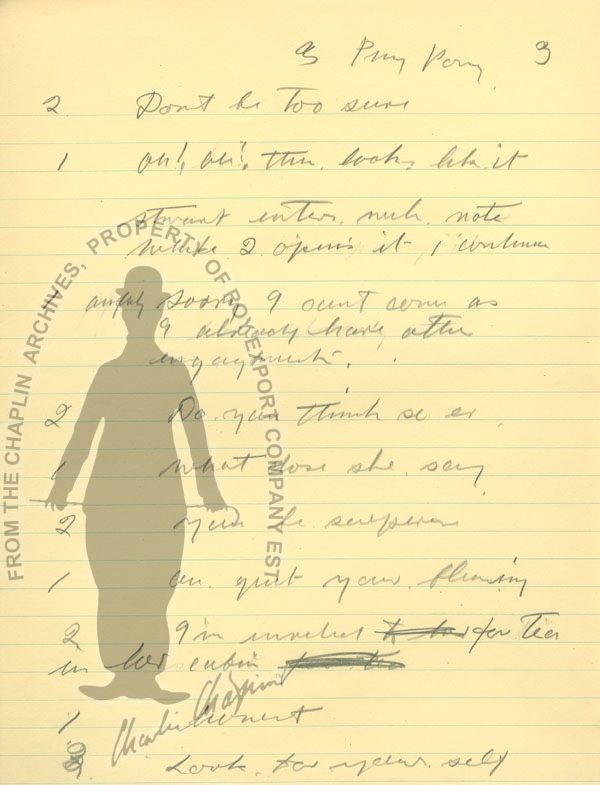 3 Ping Pong 3
2 Dont be too sure
1 oh!, oh!, looks like it
stwart enters with note
while 2 opens it 1 continues
1 awfuly sorry I cant come as
I already have other
engagements.
2 Do you think so er
1 what dose she say
2 be
1 quit your
2 Im invited for Tea
in her cabin
1 honest
2 Look for your self
FROM THE CHAPLIN ARCHIVES, PROPERTY OF ROY EXPORT COMPANY EST
Charlie Chaplin